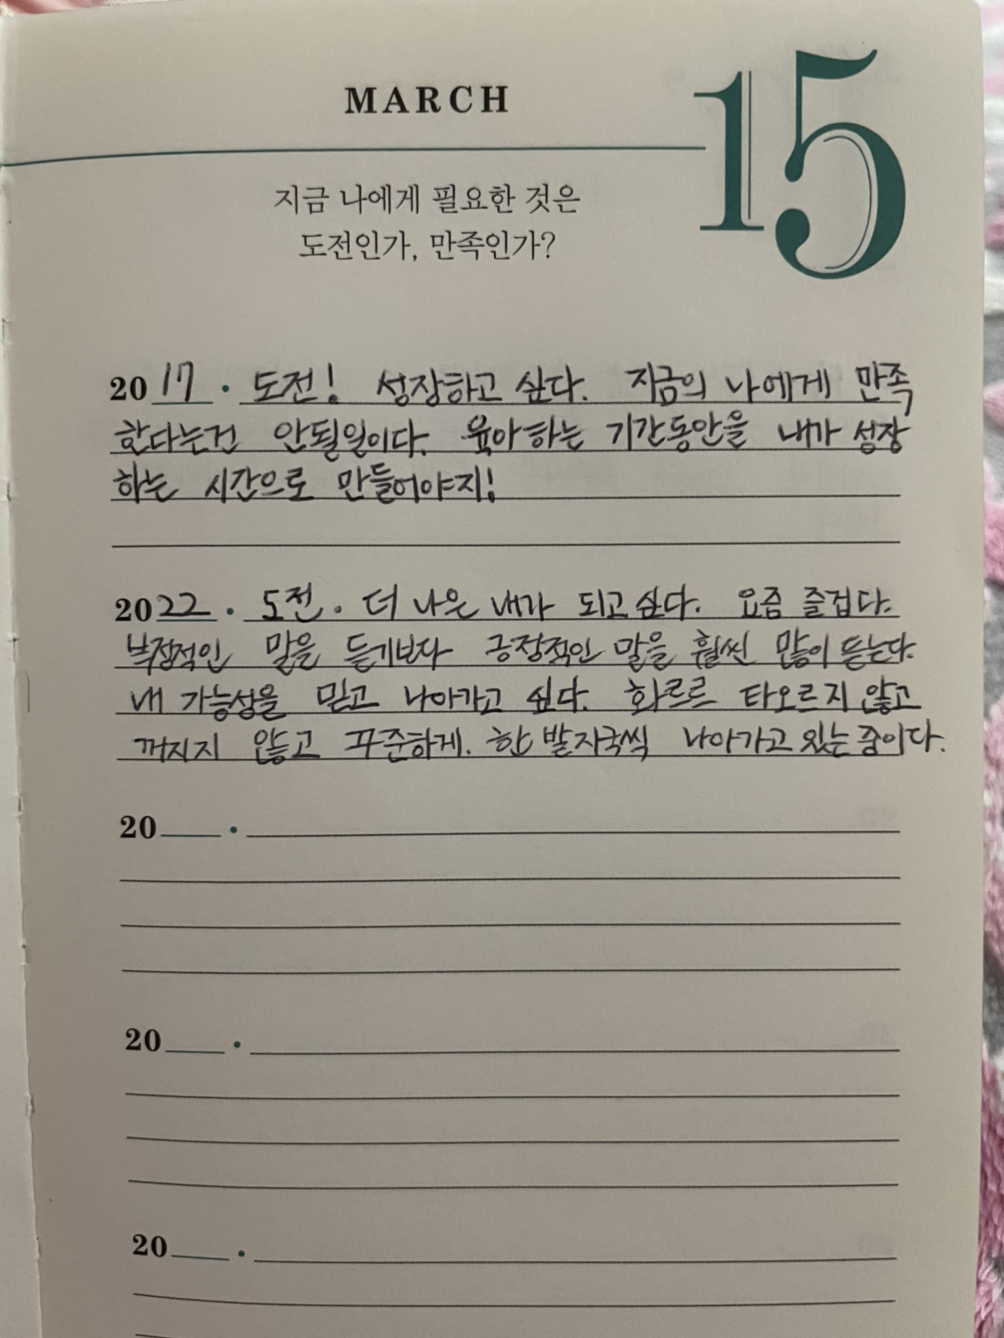 MARCH 15
지금 나에게 필요한 것은
도전인가, 만족인가?
2017 · 도전! 성장하고 싶다. 지금의 나에게 만족
한다는건 안될일이다. 육아하는 기간동안을 내가 성장
하는 시간으로 만들어야지!
2022 · 도전. 더 나은 내가 되고싶다. 요즘 즐겁다.
부정적인 말을 듣기보다 긍정적인 말을 훨씬 많이 듣는다.
내 가능성을 믿고 나아가고 싶다. 화르르 타오르지 않고
꺼지지 않고 꾸준하게. 한 발자국씩 나아가고 있는 중이다.
20 ·
20 ·
20 ·